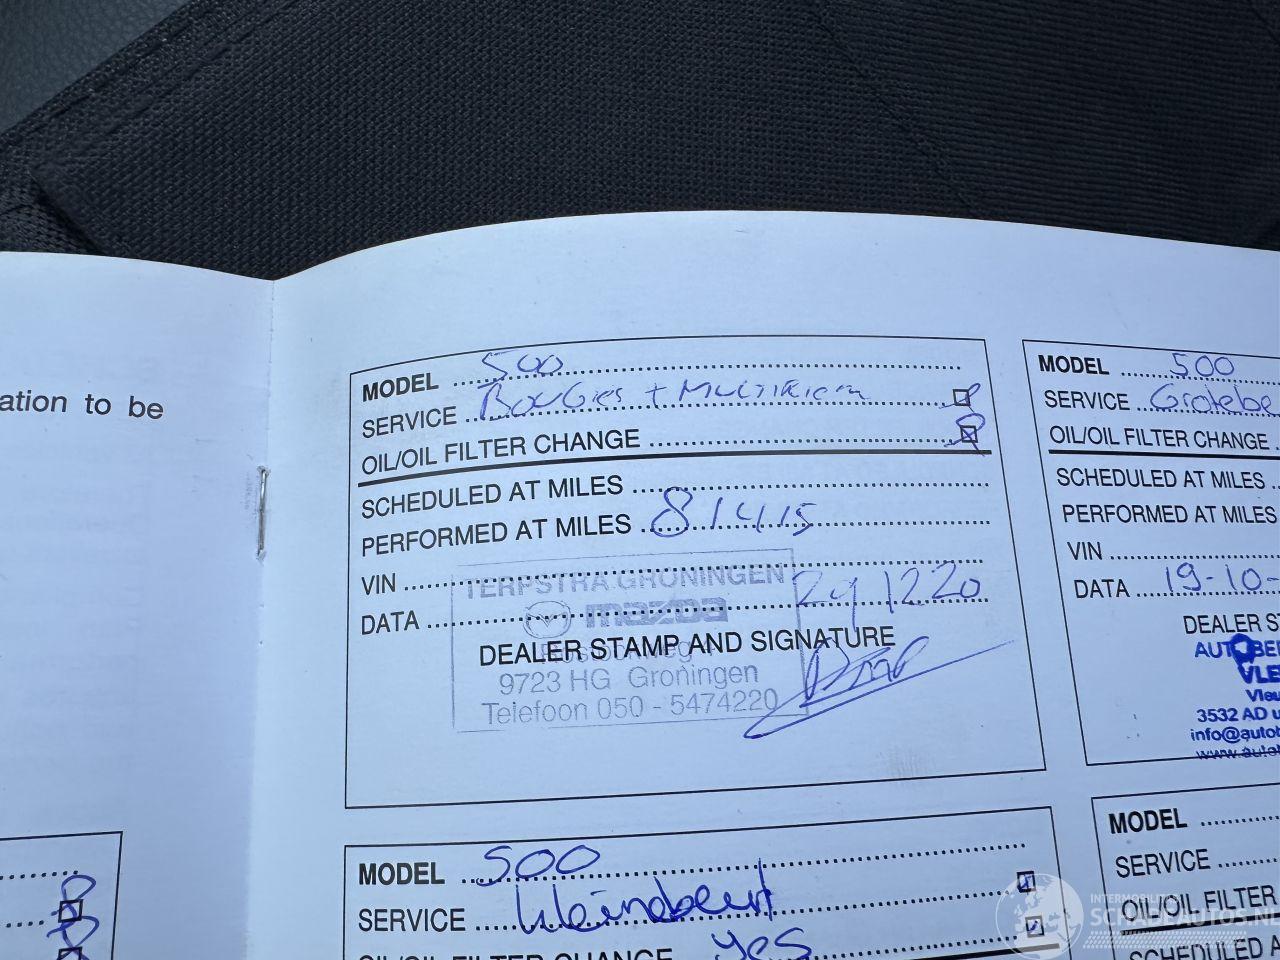 ation to be
MODEL 500
SERVICE Bougies + Multiriem
OIL/OIL FILTER CHANGE
SCHEDULED AT MILES
PERFORMED AT MILES 81415
VIN
TERPSTRA GRONINGEN
DATA 1220
mazda
DEALER STAMP AND SIGNATURE
9723 HG Groningen
Telefoon 050 - 5474220
MODEL 500
SERVICE Grotebe
OIL/OIL FILTER CHANGE
SCHEDULED AT MILES
PERFORMED AT MILES
VIN
DATA 19-10-
DEALER S
AUTOBE
VLE
Vleu
3532 AD u
info@autob
www.autob
MODEL 500
SERVICE Kleinebeurt
OIL/OIL FILTER CHANGE yes
MODEL
SERVICE
OIL/OIL FILTER
SCHEDULED A
INTERMOBILIT
SCHADEAUTOS.N